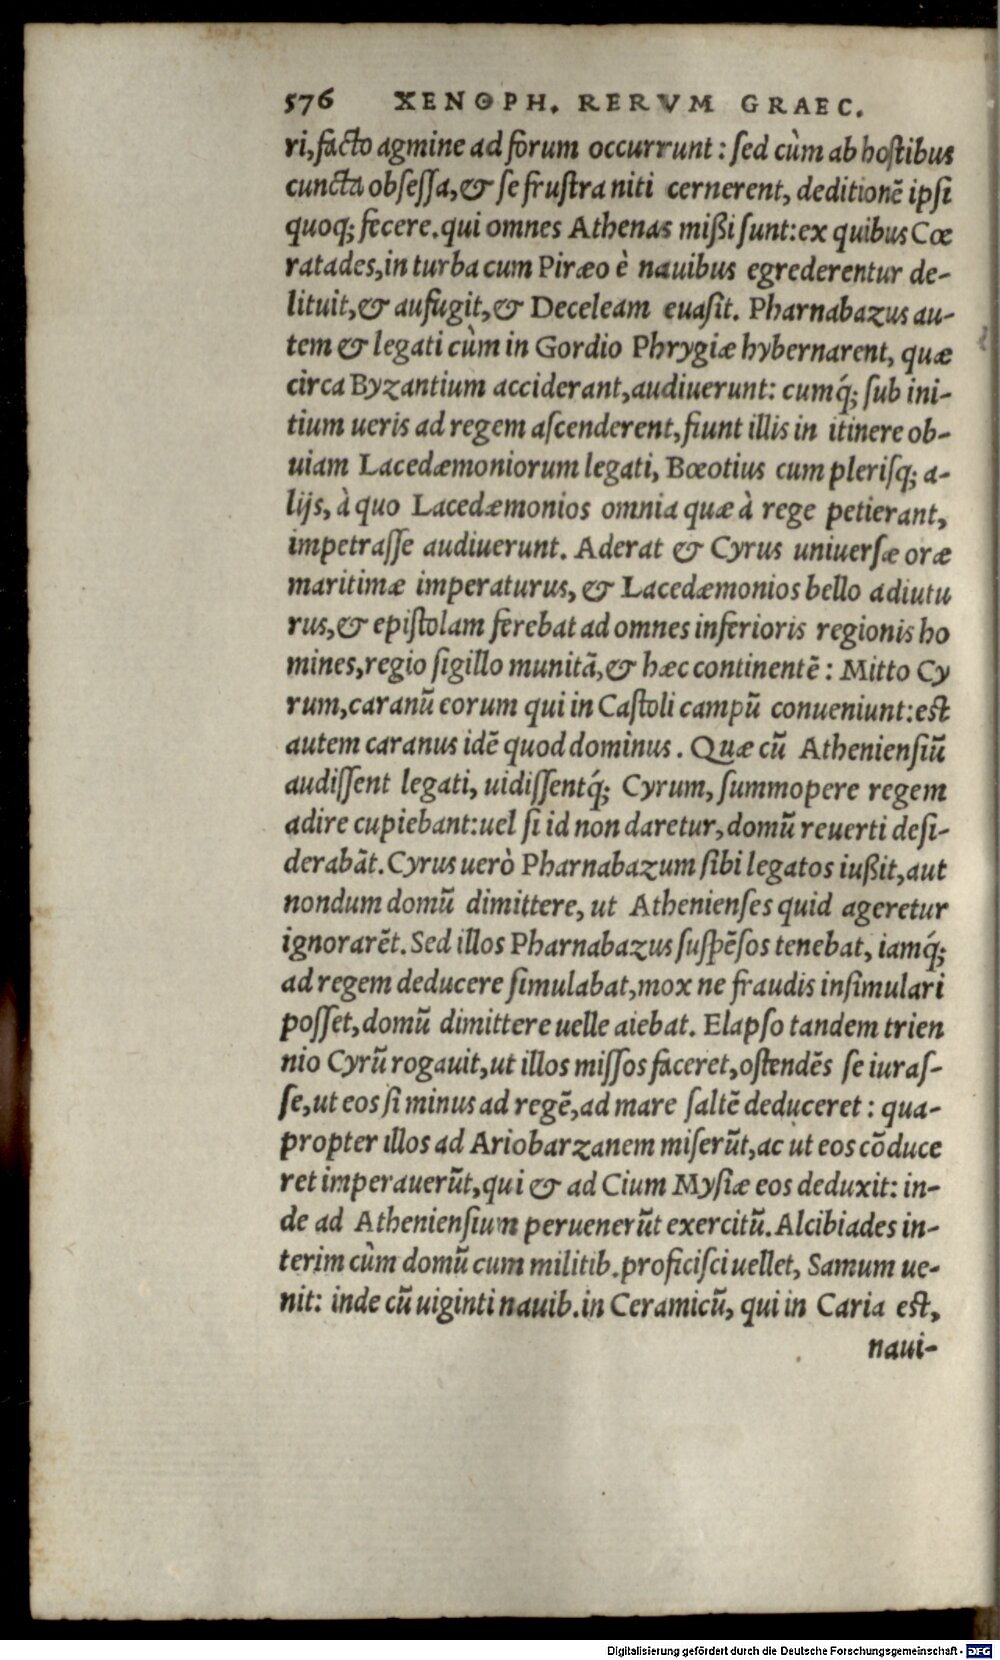 576 XENOPH. RERVM GRAEC.
ri, facto agmine ad forum occurrunt: sed cùm ab hostibus
cuncta obsessa, & se frustra niti cernerent, deditionē ipsi
quoq; fecere. qui omnes Athenas mißi sunt: ex quibus Cœ
ratades, in turba cum Piræo è nauibus egrederentur de-
lituit, & aufugit, & Deceleam euasit. Pharnabazus au-
tem & legati cùm in Gordio Phrygiæ hybernarent, quæ
circa Byzantium acciderant, audiuerunt: cumq́; sub ini-
tium ueris ad regem ascenderent, fiunt illis in itinere ob-
uiam Lacedæmoniorum legati, Bœotius cum plerisq; a-
lijs, à quo Lacedæmonios omnia quæ à rege petierant,
impetrasse audiuerunt. Aderat & Cyrus uniuersæ oræ
maritimæ imperaturus, & Lacedæmonios bello adiutu
rus, & epistolam ferebat ad omnes inferioris regionis ho
mines, regio sigillo munitā, & hæc continentē: Mitto Cy
rum, caranū eorum qui in Castoli campū conueniunt: est
autem caranus idē quod dominus. Quæ cū Atheniensiū
audissent legati, uidissentq́; Cyrum, summopere regem
adire cupiebant: uel si id non daretur, domū reuerti desi-
derabāt. Cyrus uerò Pharnabazum sibi legatos iußit, aut
nondum domū dimittere, ut Athenienses quid ageretur
ignorarēt. Sed illos Pharnabazus suspēsos tenebat, iamq́;
ad regem deducere simulabat, mox ne fraudis insimulari
posset, domū dimittere uelle aiebat. Elapso tandem trien
nio Cyrū rogauit, ut illos missos faceret, ostendēs se iuras-
se, ut eos si minus ad regē, ad mare saltē deduceret: qua-
propter illos ad Ariobarzanem miserūt, ac ut eos cōduce
ret imperauerūt, qui & ad Cium Mysiæ eos deduxit: in-
de ad Atheniensium peruenerūt exercitū. Alcibiades in-
terim cùm domū cum militib. proficisci uellet, Samum ue-
nit: inde cū uiginti nauib. in Ceramicū, qui in Caria est,
naui-
Digitalisierung gefördert durch die Deutsche Forschungsgemeinschaft - DFG